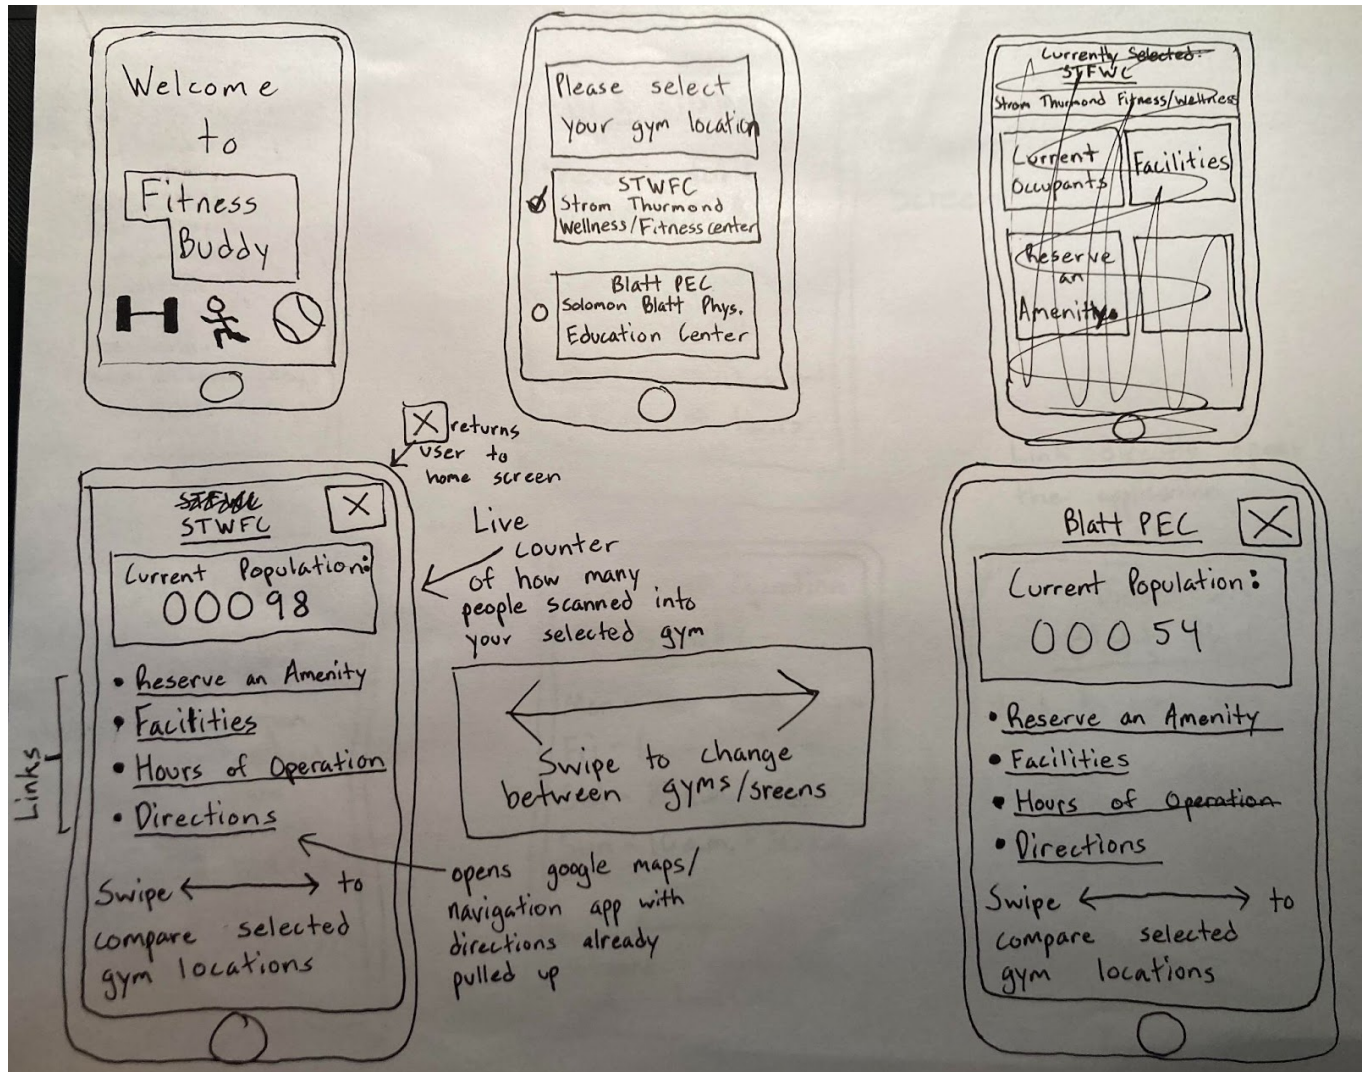 Welcome
to
Fitness
Buddy
Please select
your gym location
STWFC
Strom Thurmond
Wellness/Fitness center
Blatt PEC
Solomon Blatt Phys.
Education Center
Currently Selected:
STFWC
Strom Thurmond Fitness/Wellness
Current
Occupants
Facilities
Reserve
an
Amenity
X returns
user to
home screen
STWFC
X
Current Population:
00098
• Reserve an Amenity
• Facilities
• Hours of Operation
• Directions
Links
Swipe ⟷ to
compare selected
gym locations
Live
counter
of how many
people scanned into
your selected gym
Swipe to change
between gyms/sreens
opens google maps/
navigation app with
directions already
pulled up
Blatt PEC
X
Current Population:
00054
• Reserve an Amenity
• Facilities
• Hours of Operation
• Directions
Swipe ⟷ to
compare selected
gym locations